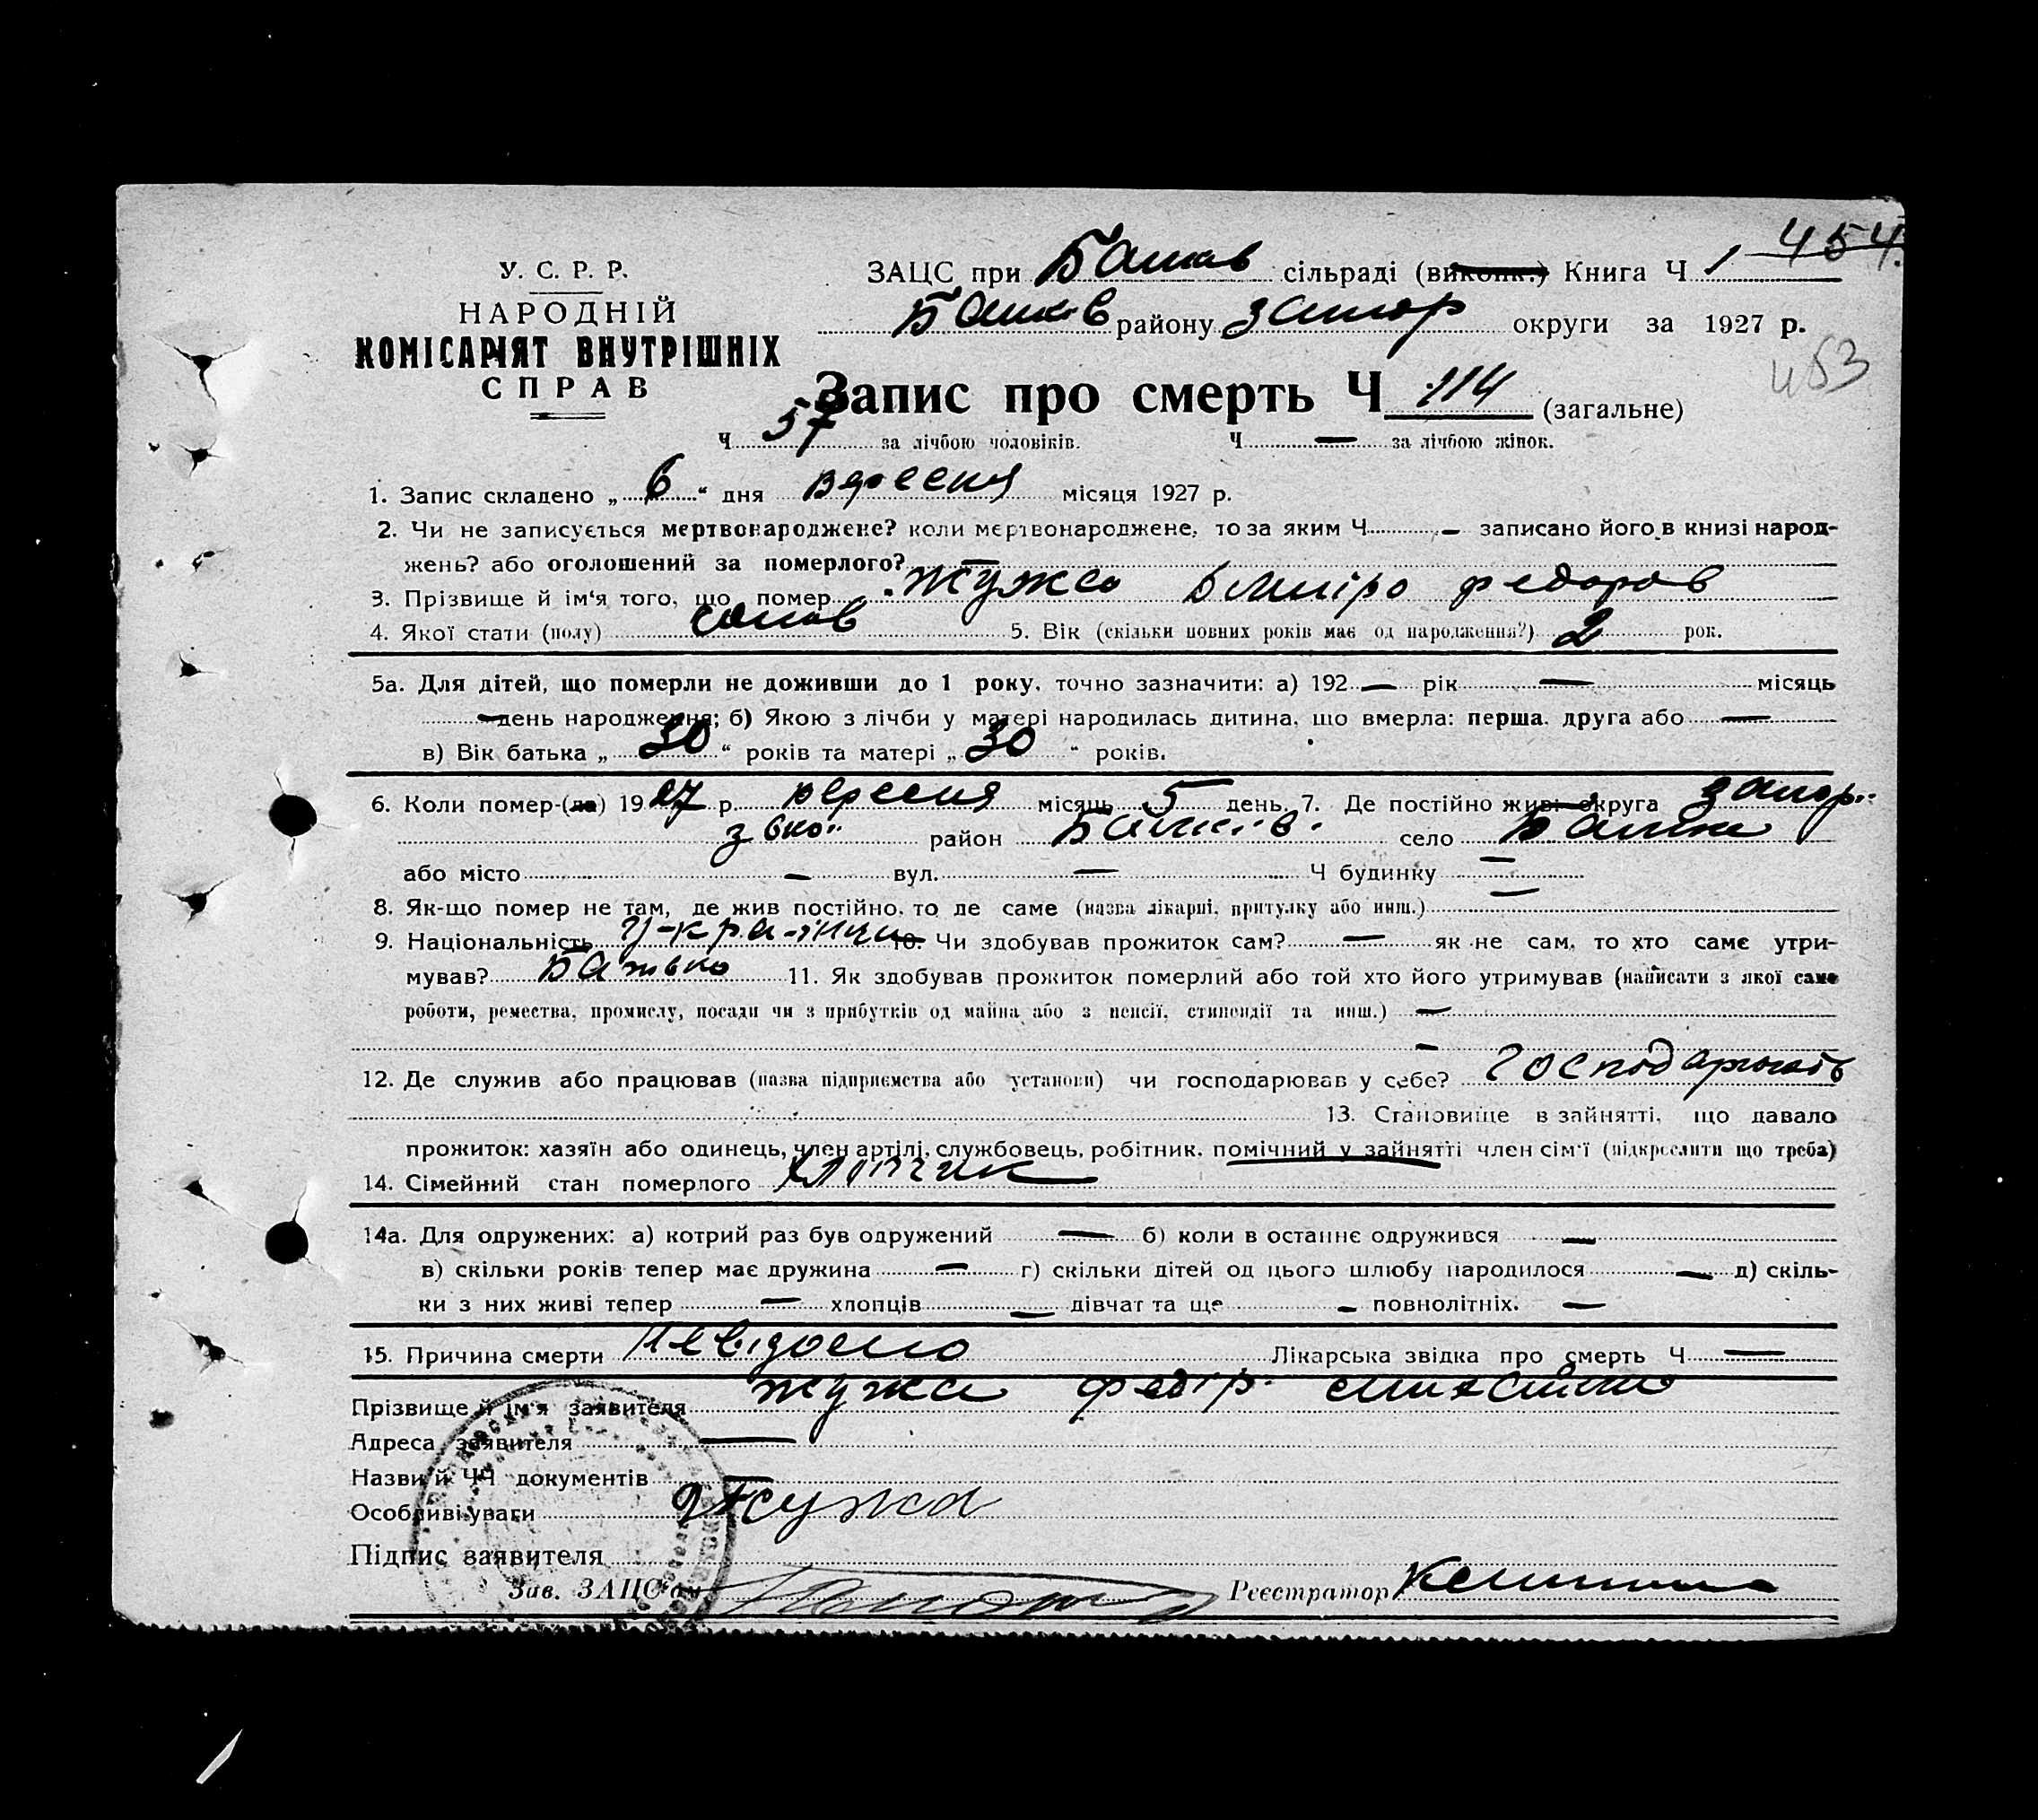 454.
У. С. Р. Р.
НАРОДНІЙ
КОМІСАРІЯТ ВНУТРІШНІХ
СПРАВ
ЗАЦС при сільраді (виконк.) Книга Ч 1
району округи за 1927 р.
453
Запис про смерть Ч 114 (загальне)
Ч 57 за лічбою чоловіків. Ч — за лічбою жінок.
1. Запис складено „ 6 “ дня вересня місяця 1927 р.
2. Чи не записується мертвонароджене? коли мертвонароджене, то за яким Ч — записано його в книзі народ-
жень? або оголошений за померлого? —
3. Прізвище й ім‘я того, що помер Жужа Дмитро Федоров
4. Якої стати (полу) самов 5. Вік (скільки повних років має од народження?) 2 рок.
5а. Для дітей, що померли не доживши до 1 року, точно зазначити: а) 192 — рік — місяць
— день народження; б) Якою з лічби у матері народилась дитина, що вмерла: перша, друга або —
в) Вік батька „ 30 “ років та матері „ 30 “ років.
6. Коли помер-(ла) 1927 р. вересня місяць 5 день. 7. Де постійно жив: округа Запор..
зької район село
або місто — вул. — Ч будинку —
8. Як-що помер не там, де жив постійно, то де саме (назва лікарні, притулку або инш.) —
9. Національність 10. Чи здобував прожиток сам? — як не сам, то хто саме утри-
мував? Батько 11. Як здобував прожиток померлий або той хто його утримував (написати з якої саме
роботи, ремества, промислу, посади чи з прибутків од майна або з пенсії, стипендії та инш.) —
—
12. Де служив або працював (назва підприємства або установи) чи господарював у себе?
13. Становище в зайнятті, що давало
прожиток: хазяїн або одинець, член артілі, службовець, робітник, помічний у зайнятті член сім‘ї (підкреслити що треба)
14. Сімейний стан померлого хлопчик
14а. Для одружених: а) котрий раз був одружений — б) коли в останнє одружився —
в) скільки років тепер має дружина — г) скільки дітей од цього шлюбу народилося — д) скіль-
ки з них живі тепер — хлопців — дівчат та ще — повнолітніх. —
15. Причина смерти Невідомо Лікарська звідка про смерть Ч —
Прізвище й ім‘я заявителя Жужа Федір
Адреса заявителя —
Назви й ЧЧ документів —
Особливі уваги Жужа
Підпис заявителя
Зав. ЗАЦС‘ом Реєстратор